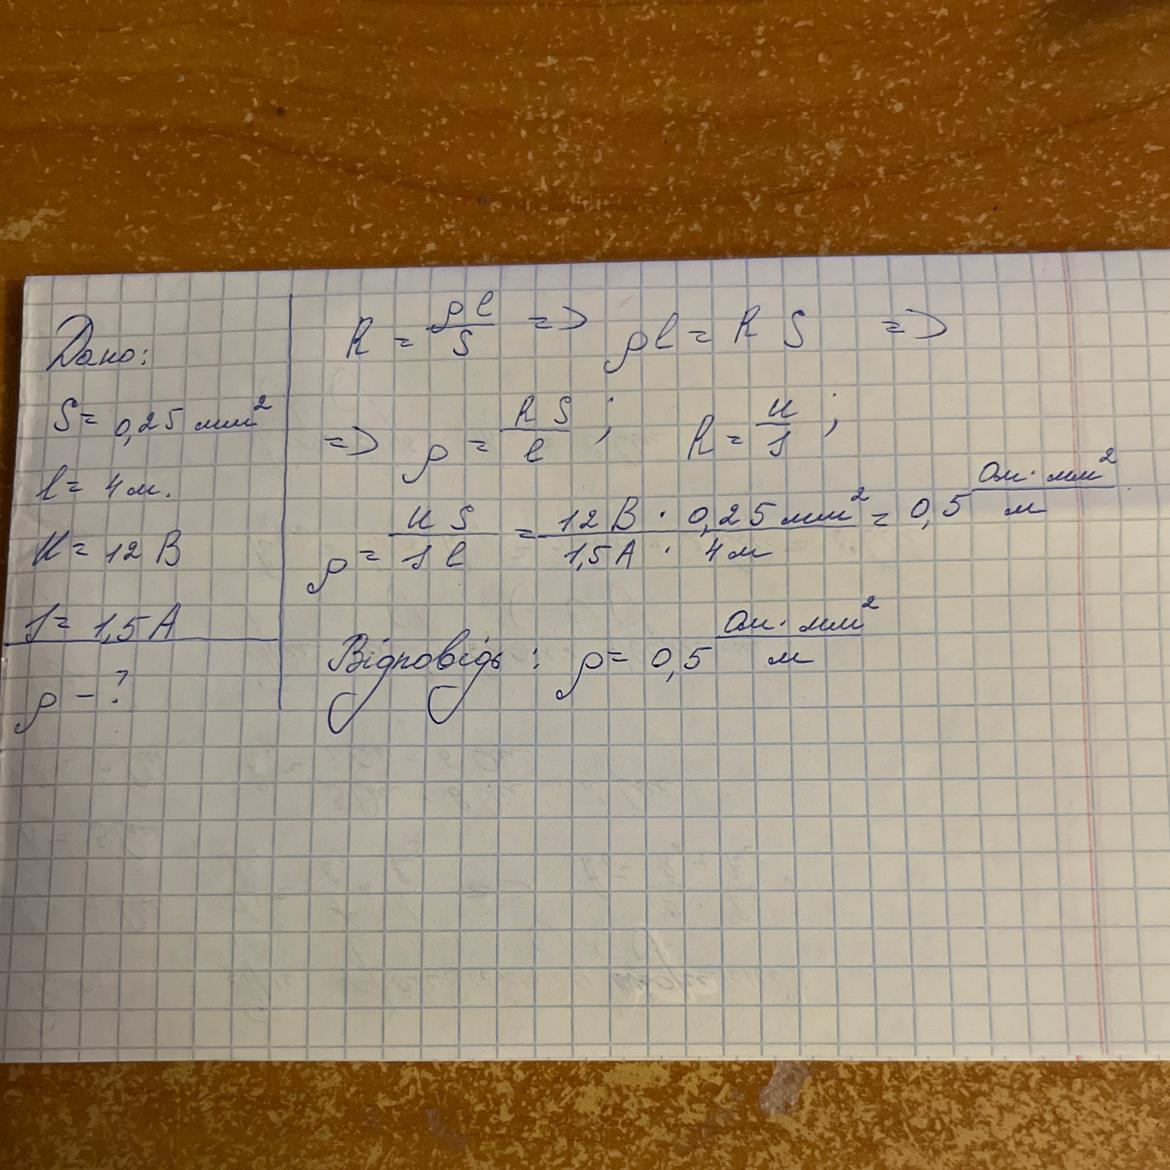 Дано:
S = 0,25 мм²
l = 4 м.
U = 12 В
I = 1,5 А
ρ - ?
R = ρl/S => ρl = R S =>
=> ρ = R S/l ; R = U/I ;
ρ = U S/I l = 12 В · 0,25 мм²/1,5 А · 4 м = 0,5 Ом · мм²/м
Відповідь : ρ = 0,5 Ом · мм²/м